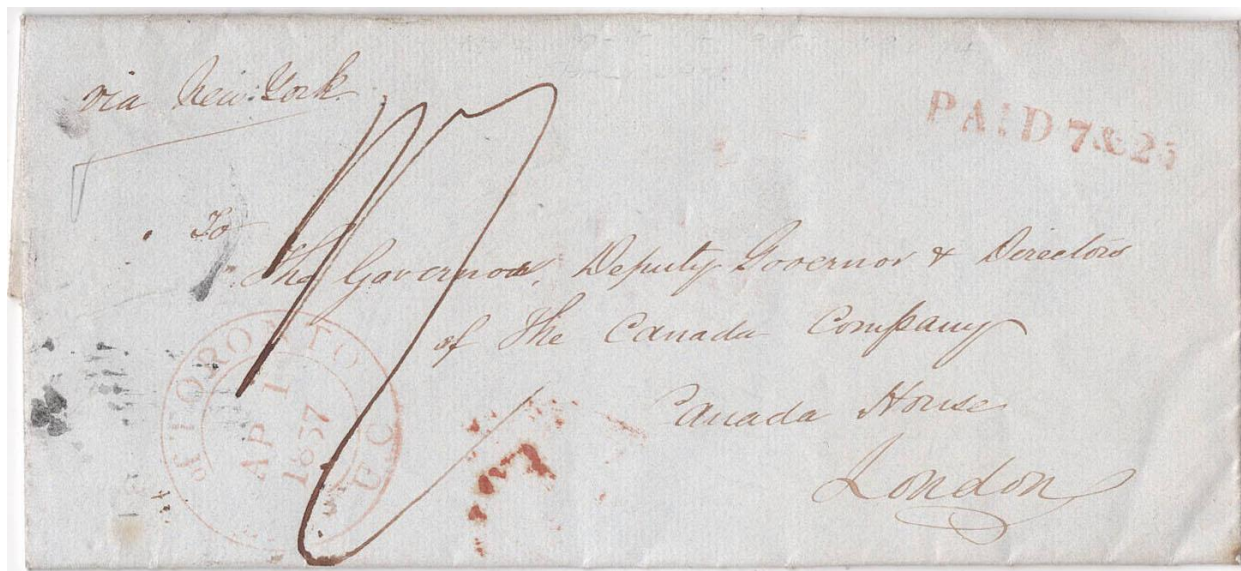 via New York
PAID 7&25
To
The Governor, Deputy Governor & Directors
of The Canada Company
Canada House
London
TORONTO U.C
AP 1
1837